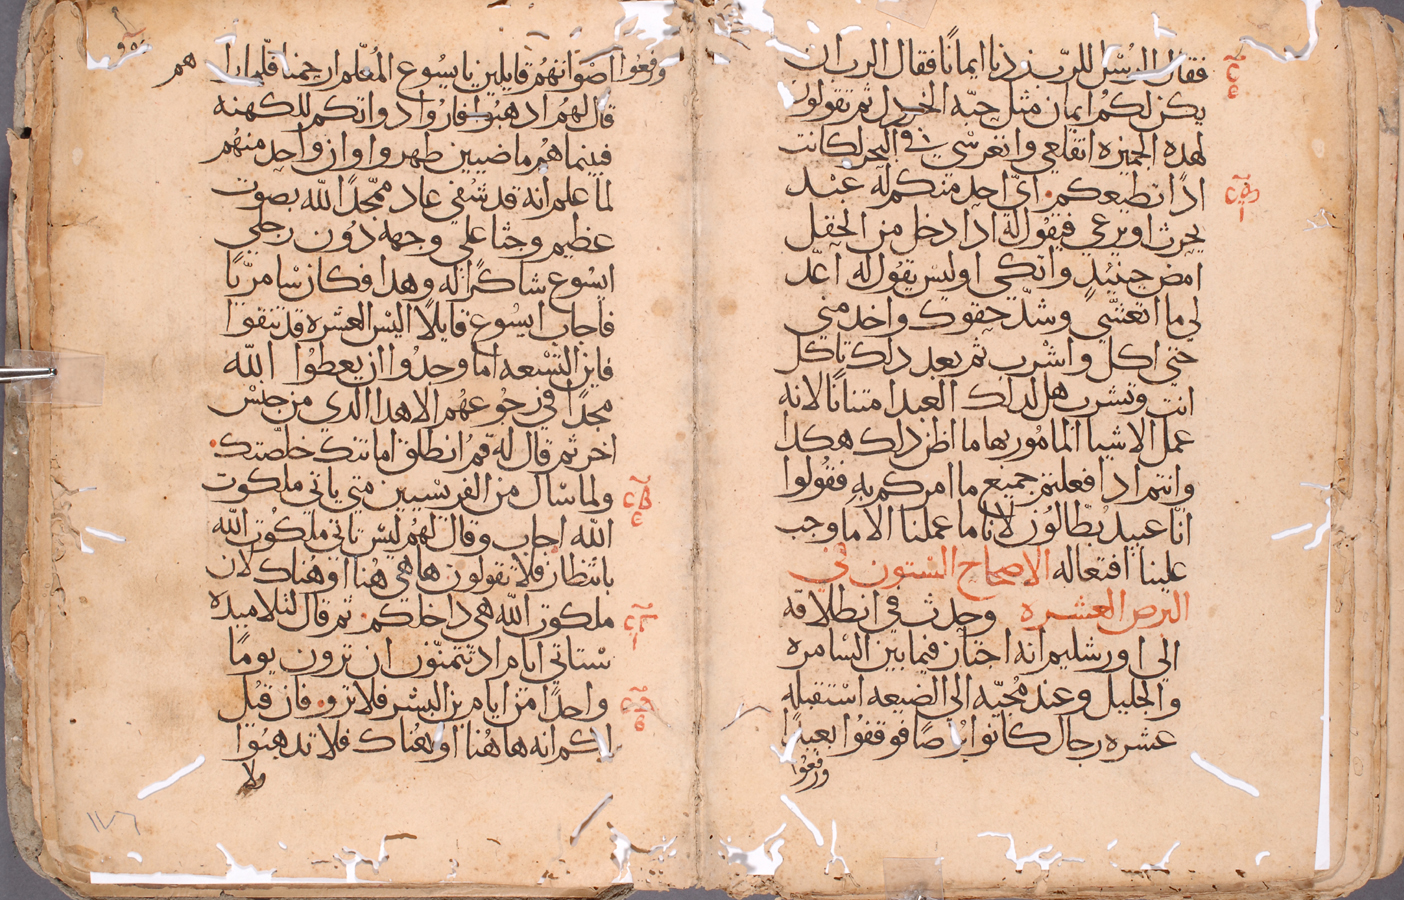 فقال الرسل للرب زدنا ايمانا فقال الرب ان
يكن لكم ايمان مثل حبه الخردل ثم تقولون
لهده الجميزه انقلعي وانغرسي في البحر لكانت
ادا تطيعكم. اي احد منكم له عبد
يحرث او يرعي فيقول له ادا دخل من الحقل
امض حينيد واتكي اوليس يقول له اعد
لي ما اتعشي وشد حقوك واخدمني
حتي اكل واشرب ثم بعد دلك تاكل
انت وتشرب هل لداك العبد امتنانا لانه
عمل الاشيا المامور بها ما اظن دلك هكدا
وانتم ادا فعلتم جميع ما امركم به فقولوا
انا عبيد بطالون لاننا ما عملنا الا ما وجب
علينا افتعاله الاصحاح الستون في
البرص العشره وحدث في انطلاقه
الي اورشليم انه اجتاز فيما بين السامره
والجليل وعند مجيه الي الضيعه استقبله
عشره رجال كانوا برصا فوقفوا بعيدا
ورفعوا
ورفعوا اصواتهم قايلين يا يسوع المعلم ارحمنا فلما را هم
قال لهم ادهبوا فاروا دواتكم للكهنه
فبينما هم ماضيين طهروا وان واحد منهم
لما علم انه قد شفي عاد ممجدا الله بصوت
عظيم وجثا علي وجهه دون رجلي
ايسوع شاكرا له وهدا فكان سامريا
فاجاب ايسوع قايلا اليس العشره قد تنقوا
فاين التسعه اما وجدوا ان يعطوا الله
مجدا في رجوعهم الا هدا الدي من جنس
اخر ثم قال له قم انطلق امانتك خلصتك.
ولما سال من الفريسيين متي ياتي ملكوت
الله اجاب وقال لهم ليس تاتي ملكوت الله
بانتظار فلا تقولون ها هي هنا او هناك لان
ملكوت الله هي داخلكم. ثم قال لتلاميده
ستاتي ايام اد تتمنون ان ترون يوما
واحدا من ايام بن البشر فلا ترو. فان قيل
لكم انه ها هنا او هناك فلا تدهبوا
ولا